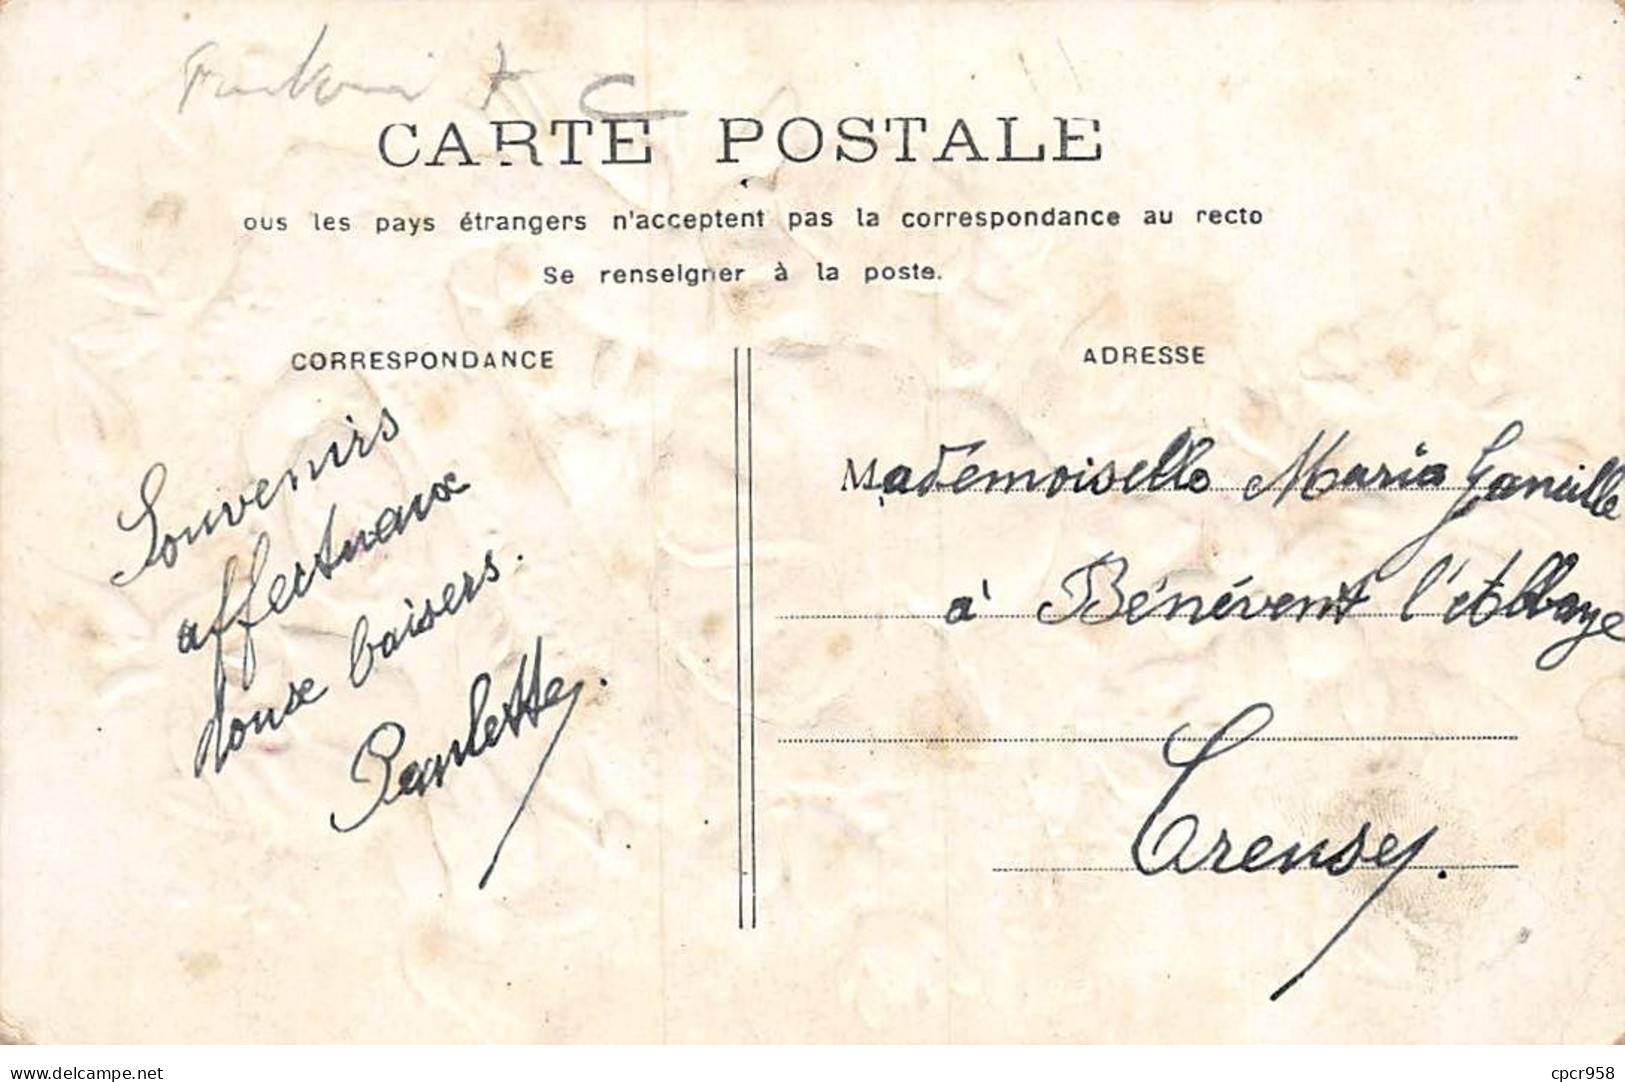 CARTE POSTALE
ous les pays étrangers n'acceptent pas la correspondance au recto
Se renseigner à la poste.
CORRESPONDANCE
Souvenirs
affectueux
douse baisers.
Paulette.
ADRESSE
Mademoiselle Maria
à Bénévent l'Abbaye
Creuse.
www.delcampe.net
cpcr958